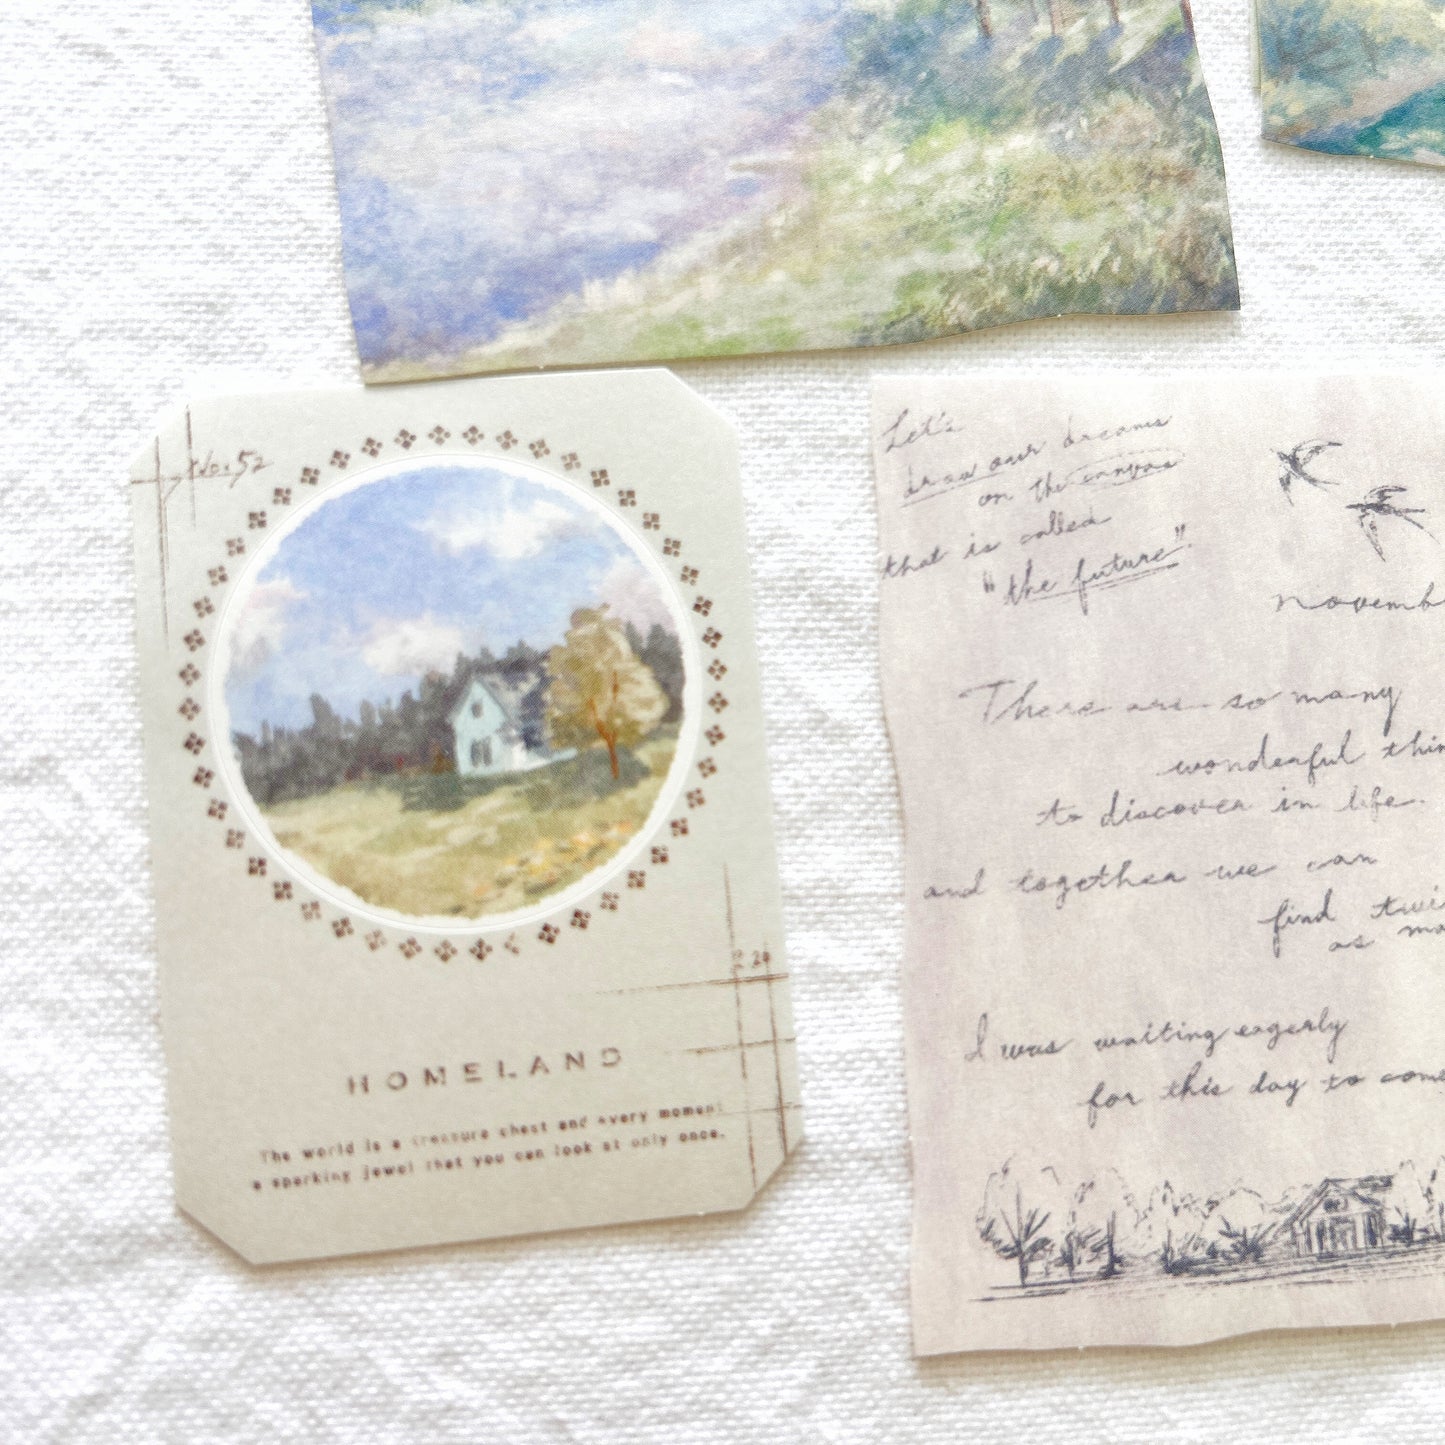 No. 52
2 20
HOMELAND
The world is a treasure chest and every moment
a sparking jewel that you can look at only once.
Let's
draw our dreams
on the canvas
that is called
"the future".
novemb
There are so many
wonderful thin
to discover in life.
and together we can
find twi
as ma
I was waiting eagerly
for this day to come